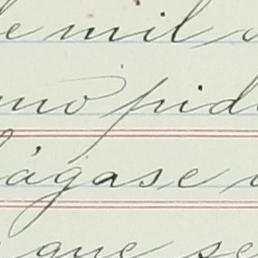 de mil
mo pid
hágase
que se